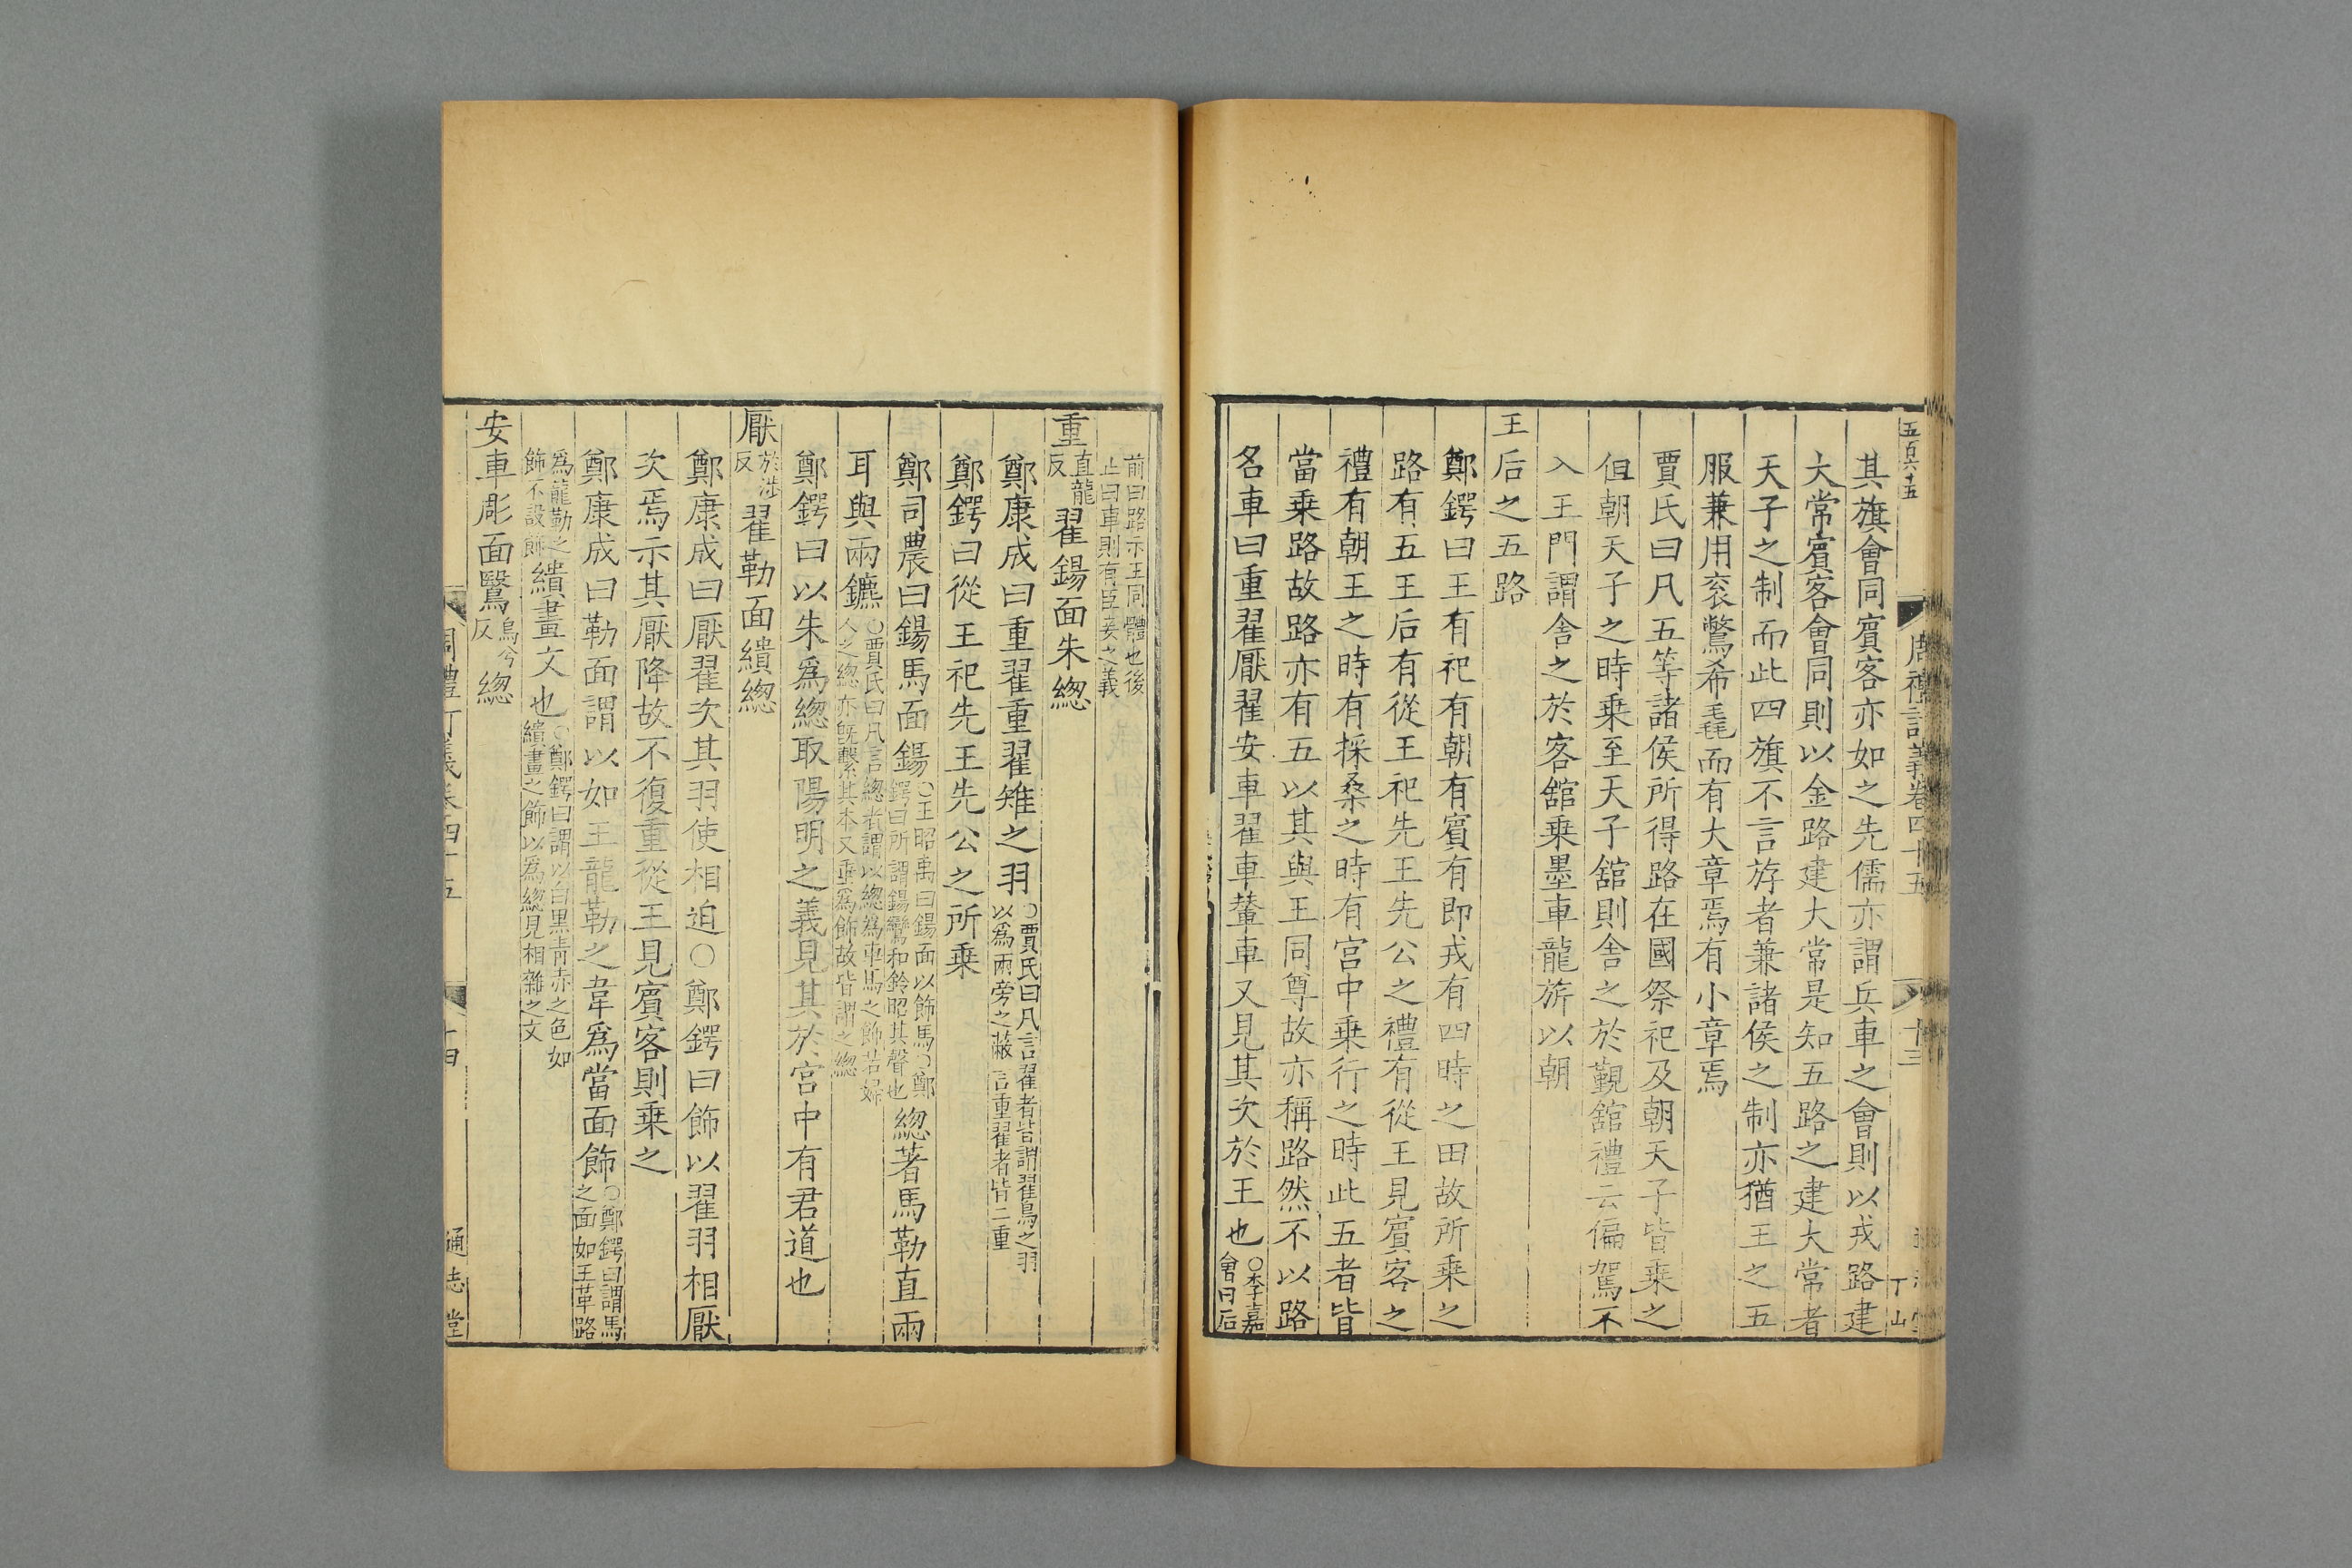 五百六十五
周禮訂義卷四十五
十三
丁山
其旗會同賓客亦如之先儒亦謂兵車之會則以戎路建
大常賓客會同則以金路建大常是知五路之建大常者
天子之制而此四旗不言斿者兼諸侯之制亦猶王之五
服兼用衮鷩希毳而有大章焉有小章焉
賈氏曰凡五等諸侯所得路在國祭祀及朝天子皆乗之
但朝天子之時乗至天子舘則舍之於覲舘禮云偏駕不
入王門謂舍之於客舘乗墨車龍旂以朝
王后之五路
鄭鍔曰王有祀有朝有賓有即戎有四時之田故所乗之
路有五王后有從王祀先王先公之禮有從王見賓客之
禮有朝王之時有採桑之時有宫中乗行之時此五者皆
當乗路故路亦有五以其與王同尊故亦稱路然不以路
名車曰重翟厭翟安車翟車輦車又見其次於王也○李嘉
會曰后
前曰路示王同體也後
止曰車則有臣妾之義
重直龍
反翟鍚面朱緫
鄭康成曰重翟重翟雉之羽○賈氏曰凡言翟者皆謂翟鳥之羽
以爲兩旁之蔽言重翟者皆二重
鄭鍔曰從王祀先王先公之所乗
鄭司農曰鍚馬面鍚○王昭禹曰鍚面以飾馬○鄭
鍔曰所謂鍚鸞和鈴昭其聲也緫著馬勒直兩
耳與兩鑣○賈氏曰凡言緫者謂以緫爲車馬之飾若婦
人之緫亦旣繫其本又垂爲飾故皆謂之緫
鄭鍔曰以朱爲緫取陽明之義見其於宫中有君道也
厭於涉
反翟勒面繢緫
鄭康成曰厭翟次其羽使相迫○鄭鍔曰飾以翟羽相厭
次焉示其厭降故不復重從王見賓客則乗之
鄭康成曰勒面謂以如王龍勒之韋爲當面飾○鄭鍔曰謂馬
之面如王革路
爲龍勒之
飾不設飾繢畫文也○鄭鍔曰謂以白黒青赤之色如
繢畫之飾以爲緫見相雜之文
安車彫面鷖烏兮
反緫
周禮訂義卷四十五
十四
通志堂